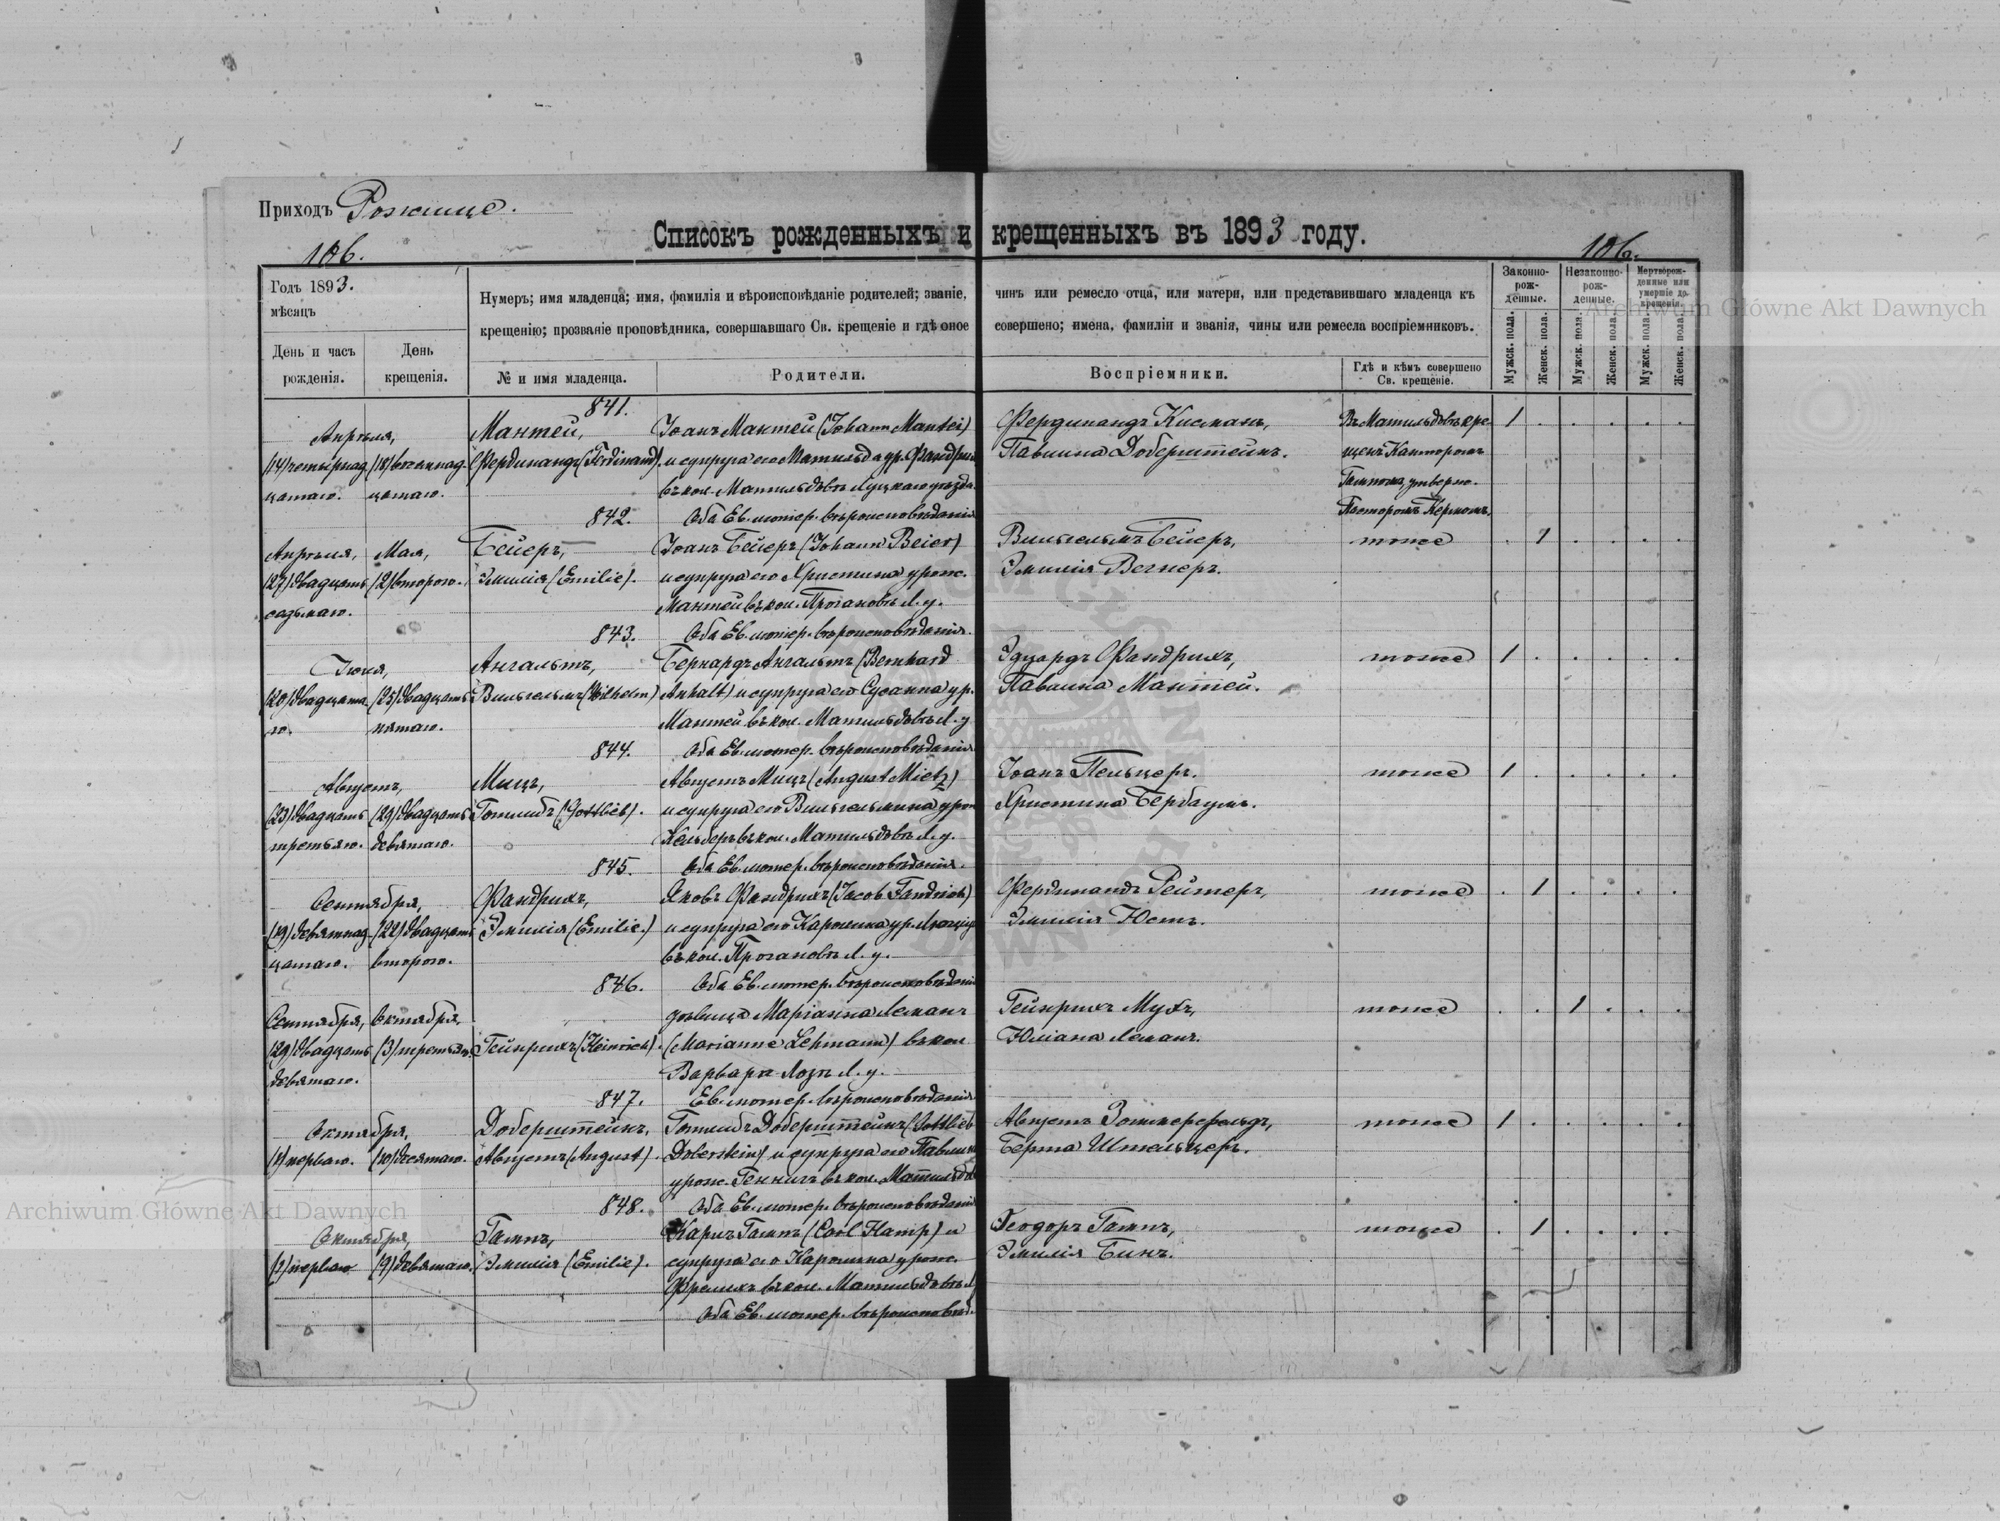 Приходъ Рожище.
Списокъ рожденныхъ и крещенныхъ въ 1893 году.
106.
106.
Годъ 1893.
мѣсяцъ
День и часъ рожденія.
День крещенія.
Нумеръ; имя младенца; имя, фамилія и вѣроисповѣданіе родителей; званіе, чинъ или ремесло отца, или матери, или представившаго младенца къ
крещенію; прозваніе проповѣдника, совершавшаго Св. крещеніе и гдѣ оное совершено; имена, фамиліи и званія, чины или ремесла воспріемниковъ.
№ и имя младенца.
Родители.
Воспріемники.
Гдѣ и кѣмъ совершено Св. крещеніе.
Законно-рож-денные.
Незаконно-рож-денные.
Мертворож-денные или умершіе до крещенія.
Мужск. пола.
Женск. пола.
Мужск. пола.
Женск. пола.
Мужск. пола.
Женск. пола.
841.
Апрѣля,
Мантей,
Іоанъ Мантей (Johann Mantei)
Фердинандъ Кисманъ,
Въ Матильдовѣ кре-
1
(14) четырнад-
(18) восемнад-
Фердинандъ (Ferdinand).
и супруга его Матильда ур. Фандрих
Павлина Доберштейнъ.
щенъ Канторомъ
цатаго.
цатаго.
въ кол. Матильдовъ Луцкаго уѣзда.
Гампомъ, утвержд.
842.
Оба Ев. лютер. вѣроисповѣданія
Пасторомъ Кермомъ.
Апрѣля,
Мая,
Бейеръ,
Іоанъ Бейеръ (Johann Beier)
Вильгельмъ Бейеръ,
тоже
1
(27) двадцать
(2) второго.
Эмилія (Emilie).
и супруга его Христина урож.
Эмилія Вегнеръ.
седьмаго.
Мантей въ кол. Прогановъ Л. у.
843.
Оба Ев. лютер. вѣроисповѣданія.
Іюня,
Ангальтъ,
Бернардъ Ангальтъ (Bernhard
Эдуардъ Фандрихъ,
тоже
1
(20) двадцата-
(25) двадцать
Вильгельмъ (Wilhelm)
Anhalt) и супруга его Сусанна ур.
Павлина Мантей.
го.
пятаго.
Мантей въ кол. Матильдовъ Л. у
844.
Оба Ев. лютер. вѣроисповѣданія
Августъ,
Мицъ,
Августъ Мицъ (August Mietz)
Іоанъ Пельцеръ.
тоже
1
(23) двадцать
(29) двадцать
Готлибъ (Gottlieb).
и супруга его Вильгельмина урож
Христина Бербаумъ.
третьяго.
девятаго.
Кельберъ въ кол. Матильдовъ Л. у.
845.
Оба Ев. лютер. вѣроисповѣданія.
Сентября,
Фандрихъ,
Яковъ Фандрихъ (Jacob Fandrich)
Фердинандъ Реймеръ,
тоже
1
(19) девятнад-
(22) двадцать
Эмилія (Emilie.)
и супруга его Каролина ур.
Эмилія Юстъ.
цатаго.
второго.
въ кол. Прогановъ Л. у.
846.
Оба Ев. лютер. вѣроисповѣданія
Сентября,
Октября,
дѣвица Маріанна Леманъ
Гейнрихъ Мухъ,
тоже
1
(29) двадцать
(3) третьяго.
Гейнрихъ (Heinrich).
(Marianne Lehmann) въ кол
Юліана Леманъ.
девятаго.
Варвара Лозъ Л. у.
847.
Ев. лютер. вѣроисповѣданія
Октября,
Доберштейнъ,
Готлибъ Доберштейнъ (Gottlieb
Августъ Зоммерфельдъ,
тоже
1
(1) перваго.
(10) десятаго.
Августъ (August).
Doberstein) и супруга его Павлина
Берта Штельцеръ.
урож. Геннигъ въ кол. Матильдовъ
848.
Оба Ев. лютер. вѣроисповѣданія
Октября,
Гампъ,
Карлъ Гампъ (Carl Hamp) и
Теодоръ Гампъ,
тоже
1
(1) перваго
(9) девятаго.
Эмилія (Emilie).
супруга его Каролина урож.
Эмилія Бинъ.
Фрелихъ въ кол. Матильдовъ Л
Оба Ев. лютер. вѣроисповѣд.
Archiwum Główne Akt Dawnych
Archiwum Główne Akt Dawnych